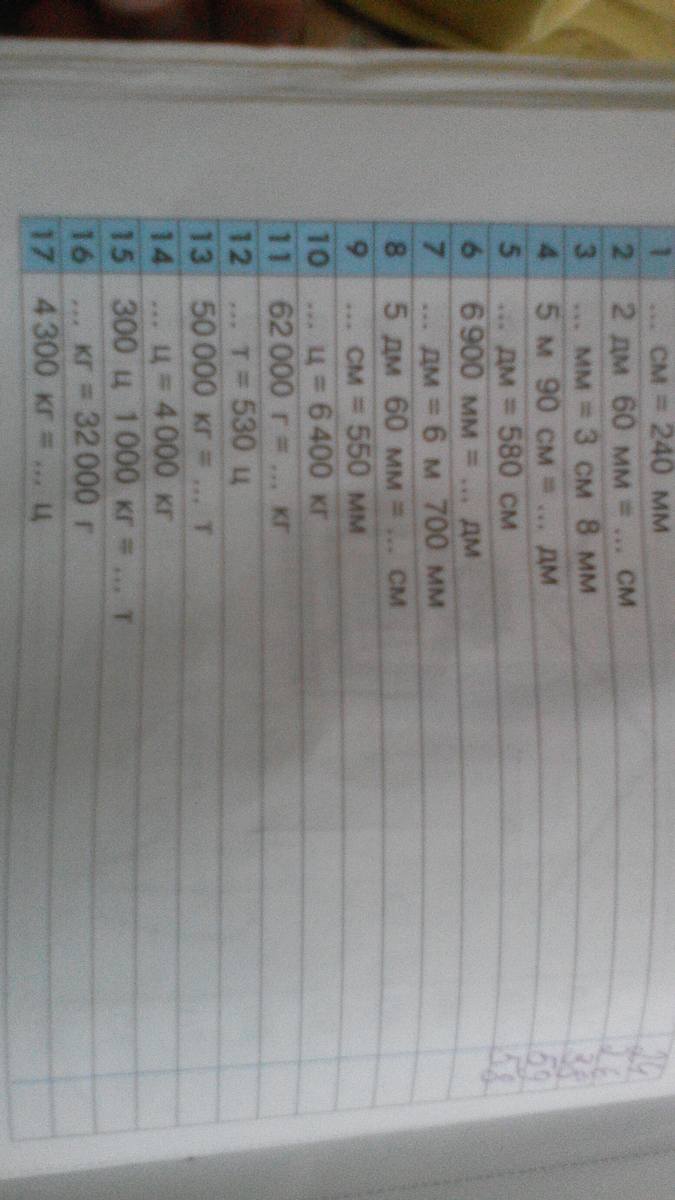 1 ... см = 240 мм 24
2 2 дм 60 мм = ... см 26
3 ... мм = 3 см 8 мм 38
4 5 м 90 см = ... дм 59
5 ... дм = 580 см 58
6 6 900 мм = ... дм
7 ... дм = 6 м 700 мм
8 5 дм 60 мм = ... см
9 ... см = 550 мм
10 ... ц = 6 400 кг
11 62 000 г = ... кг
12 ... т = 530 ц
13 50 000 кг = ... т
14 ... ц = 4 000 кг
15 300 ц 1 000 кг = ... т
16 ... кг = 32 000 г
17 4 300 кг = ... ц